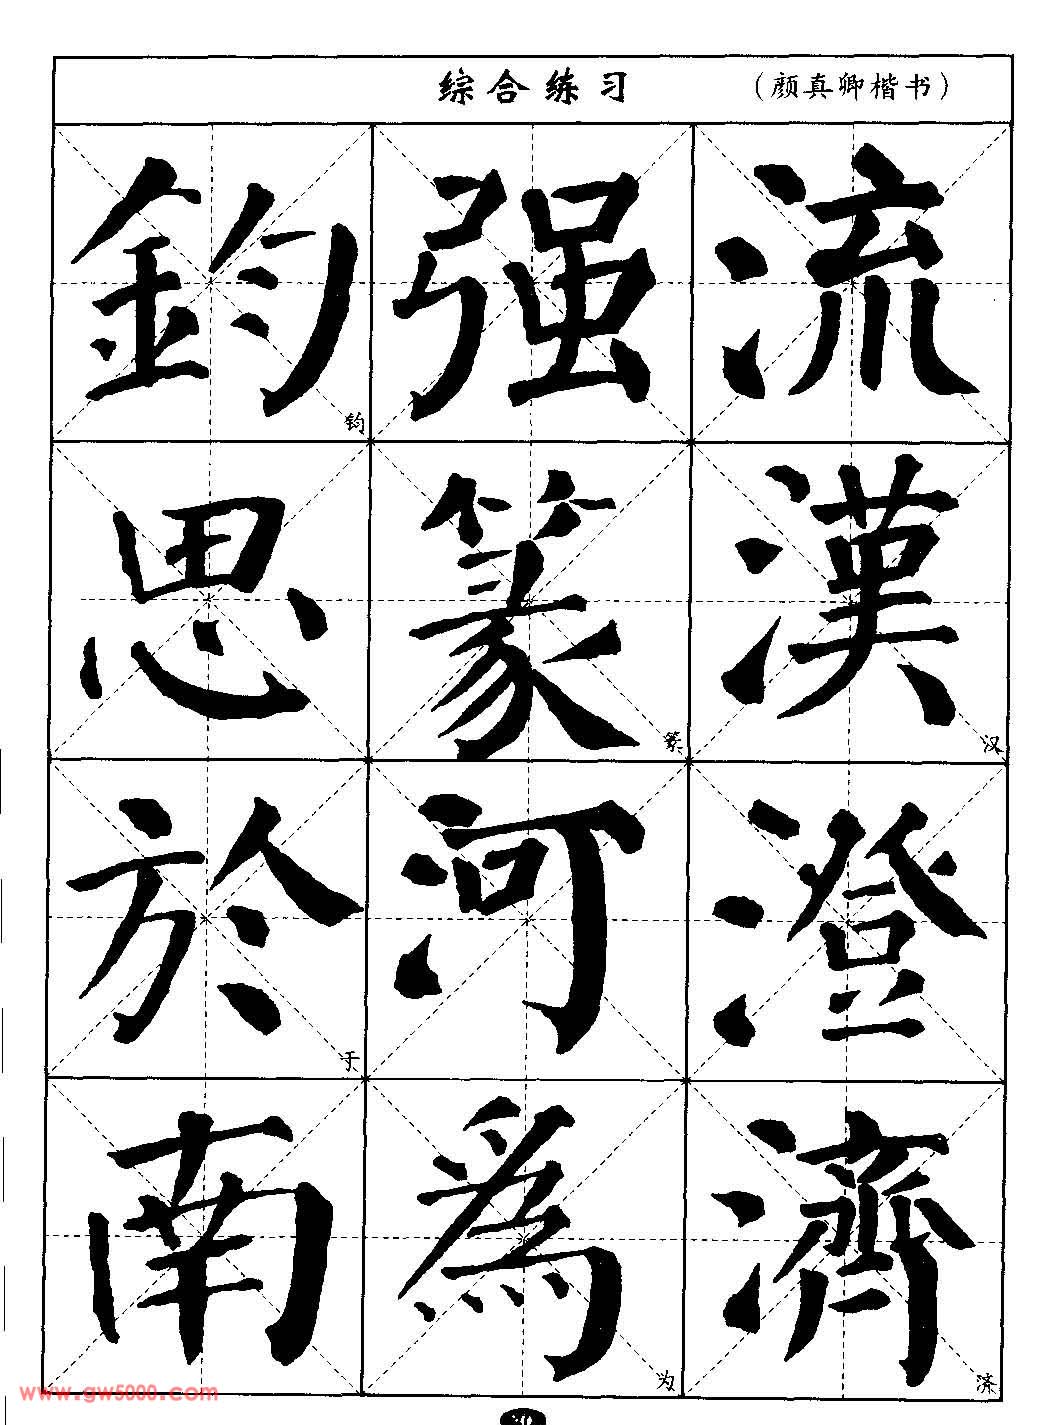 综合练习 (颜真卿楷书)
鈞 强 流
钧
思 篆 漢
篆 汉
於 河 澄
于
南 為 濟
为 济
www.gw5000.com